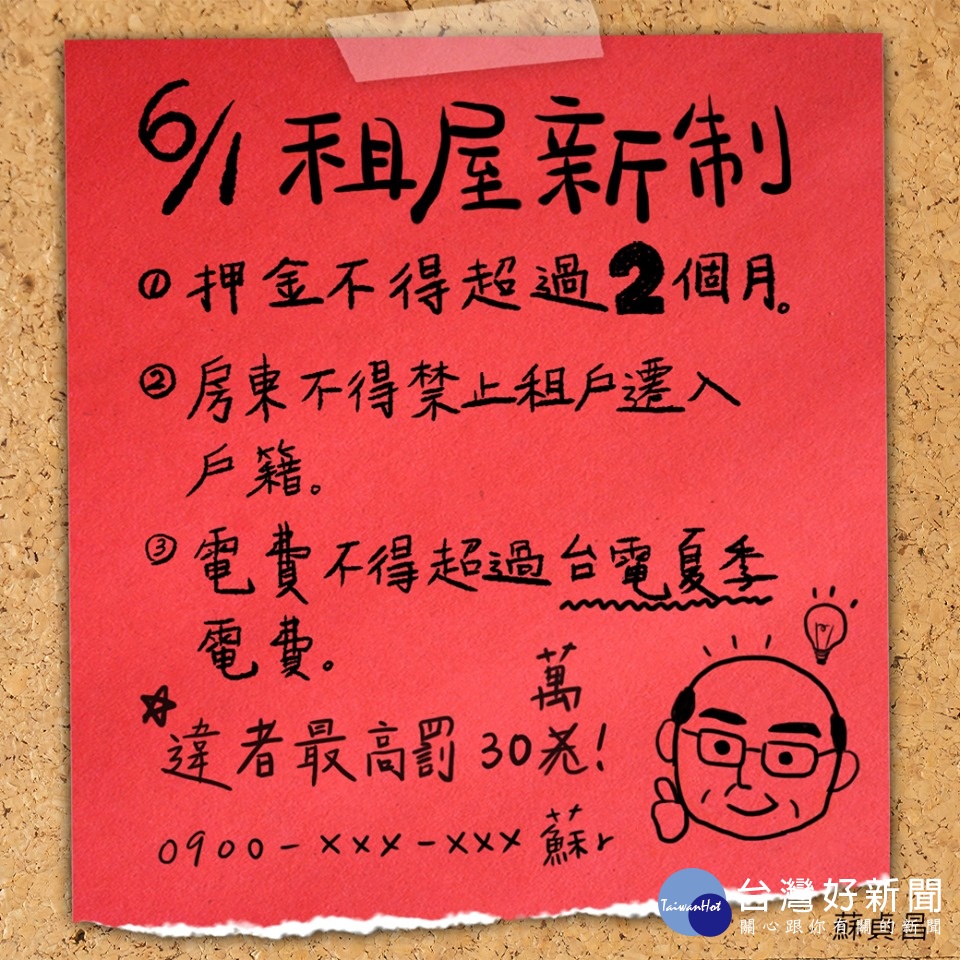 6/1 租屋新制
① 押金不得超過2個月。
② 房東不得禁止租戶遷入
戶籍。
③ 電費不得超過台電夏季
電費。
萬
☆違者最高罰30元!
0900-xxx-xxx 蘇r
TaiwanHot
台灣好新聞
關心跟你有關的新聞
蘇貞昌